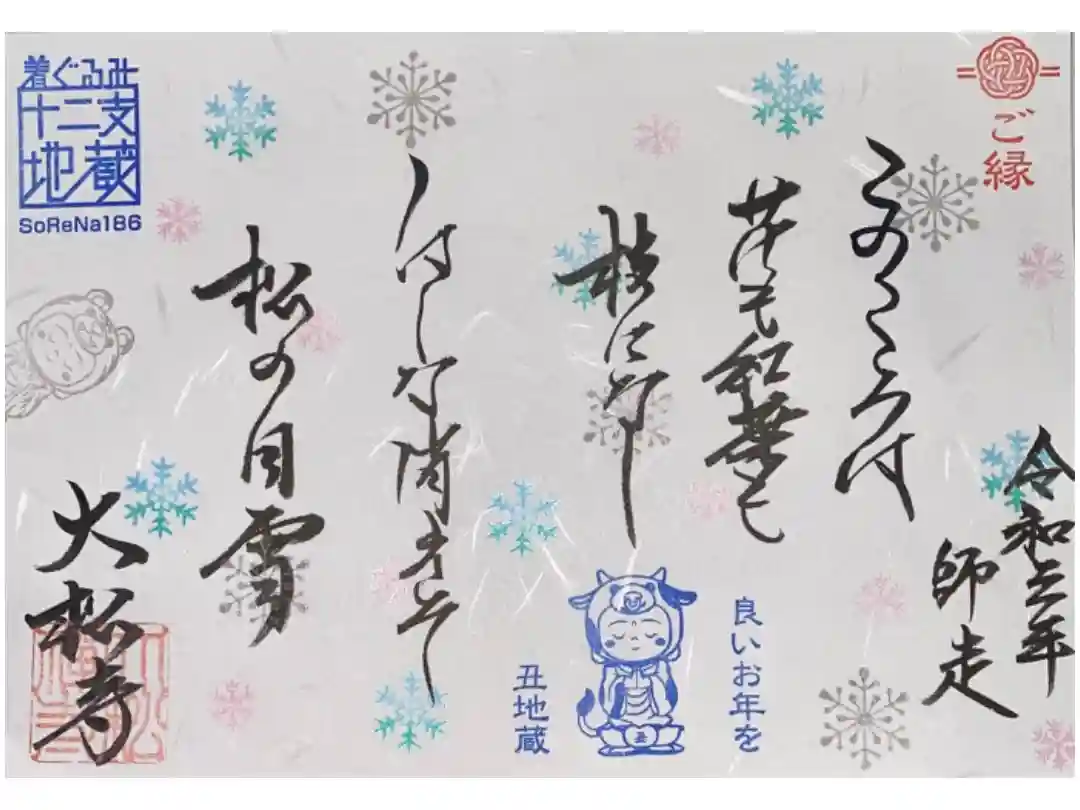 ご縁
令和三年
師走
このころは
花も紅葉も
枝になし
しはしな消えそ
松の白雪
大松寺
着ぐるみ
十二支
地蔵
SoReNa186
良いお年を
丑地蔵